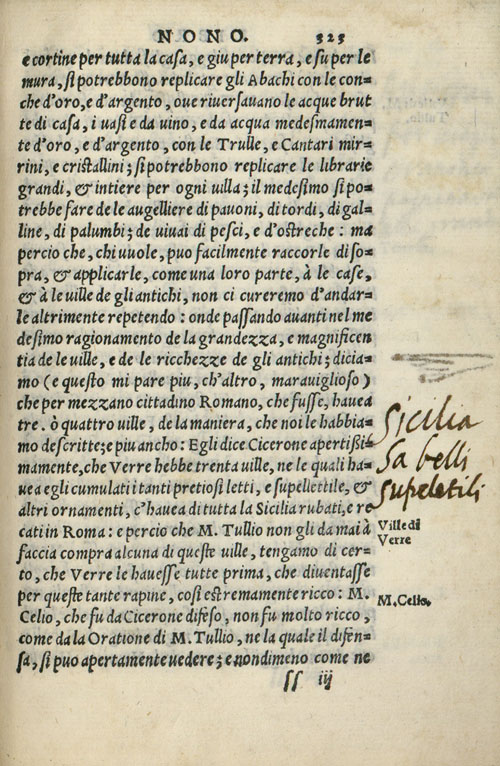 NONO. 323
e cortine per tutta la casa, e giu per terra, e su per le
mura, si potrebbono replicare gli Abachi con le con=
che d'oro, e d'argento, oue riuersauano le acque brut
te di casa, i uasi e da uino, e da acqua medesmamen=
te d'oro, e d'argento, con le Trulle, e Cantari mir=
rini, e cristallini; si potrebbono replicare le librarie
grandi, & intiere per ogni uilla; il medesimo si po=
trebbe fare de le augelliere di pauoni, di tordi, di gal=
line, di palumbi; de uiuai di pesci, e d'ostreche: ma
percio che, chi uuole, puo facilmente raccorle di so=
pra, & applicarle, come una loro parte, à le case,
& à le uille de gli antichi, non ci cureremo d'andar=
le altrimente repetendo: onde passando auanti nel me
desimo ragionamento de la grandezza, e magnificen
tia de le uille, e de le ricchezze de gli antichi; dicia=
mo (e questo mi pare piu, ch'altro, marauiglioso)
che per mezzano cittadino Romano, che fusse, hauea
tre. ò quattro uille, de la maniera, che noi le habbia=
mo descritte; e piu ancho: Egli dice Cicerone apertißi=
mamente, che Verre hebbe trenta uille, ne le quali ha=
uea egli cumulati i tanti pretiosi letti, e supellettile, &
altri ornamenti, c'hauea di tutta la Sicilia rubati, e re
cati in Roma: e percio che M. Tullio non gli da mai à
faccia compra alcuna di queste uille, tengamo di cer=
to, che Verre le hauesse tutte prima, che diuentasse
per queste tante rapine, così estremamente ricco: M.
Celio, che fu da Cicerone difeso, non fu molto ricco,
come da la Oratione di M. Tullio, ne la quale il difen=
sa, si puo apertamente uedere; e nondimeno come ne
ss iij
Sicilia
Sa belli
supeletili
Ville di
Verre
M. Celio.